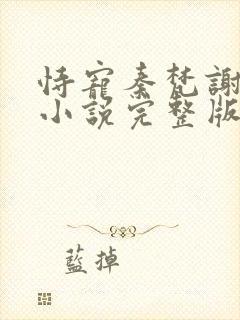 恃寵秦梵謝
小說完整版
藍掉